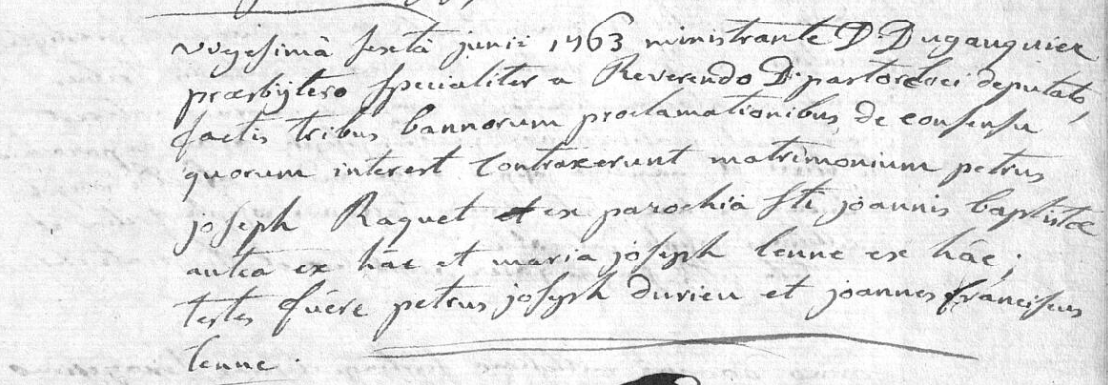 vigesimâ sextâ junii 1763 ministrante D Dugauquier
præsbytero specialiter a Reverendo D. pastore loci deputato,
factis tribus bannorum proclamationibus, de consensu
quorum interest contraxerunt matrimonium petrus
joseph Raquet ex parochiâ Sti joannis baptistæ
antea ex hâc et maria joseph lenne ex hâc;
testes fuêre petrus joseph durieu et joannes franciscus
lenne.